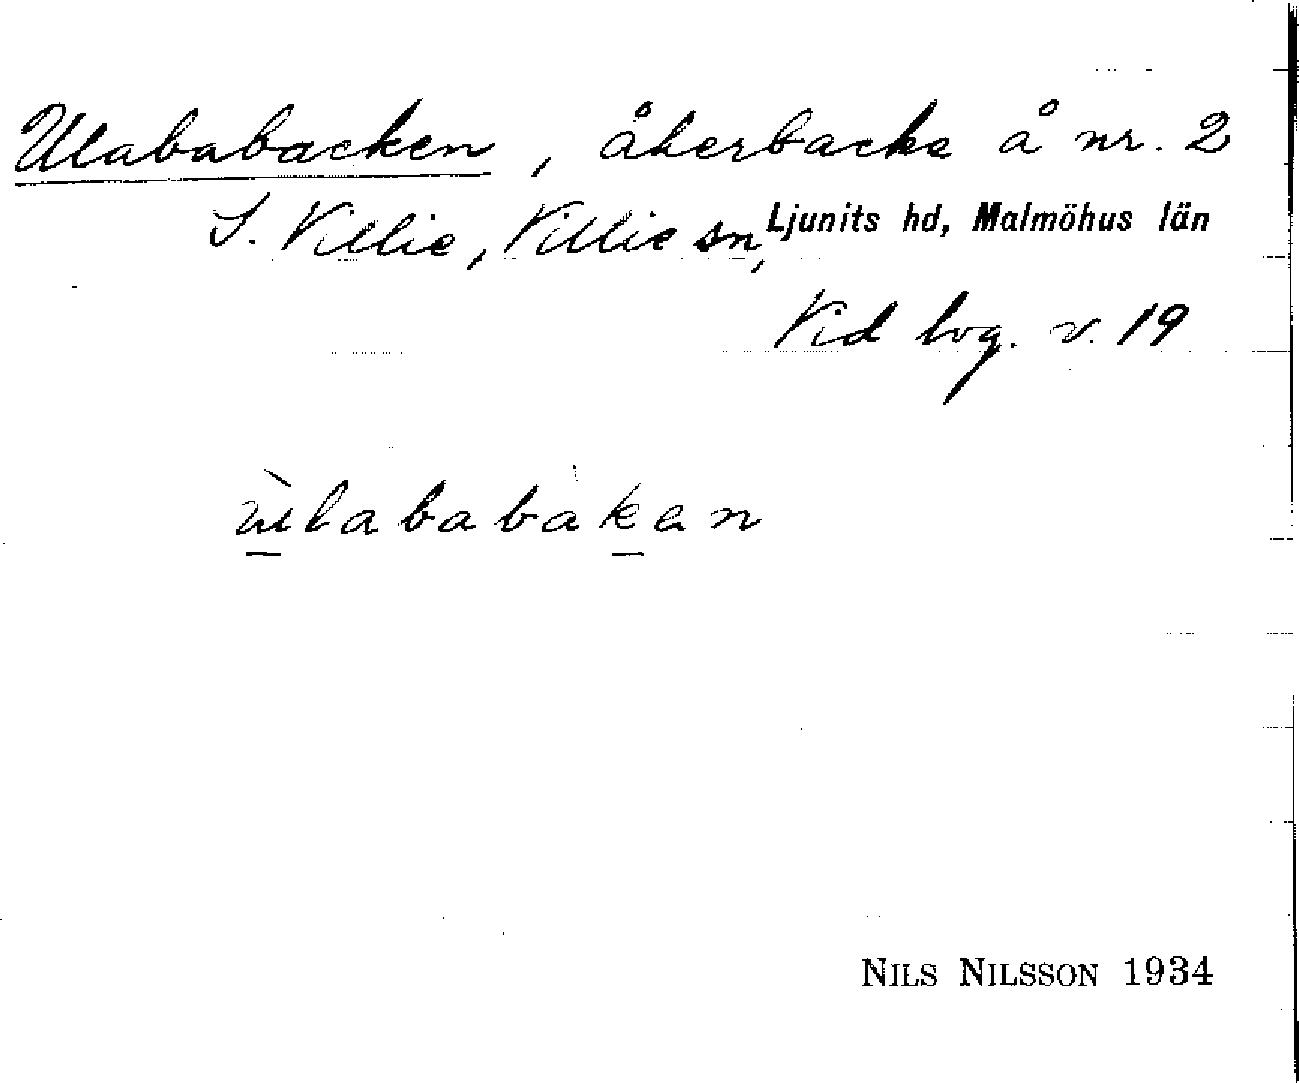 Ulababacken, åkerbacke å nr. 2
S. Villie, Villie sn, Ljunits hd, Malmöhus län
Vid bvg. v. 19
ùlababàkan
NILS NILSSON 1934